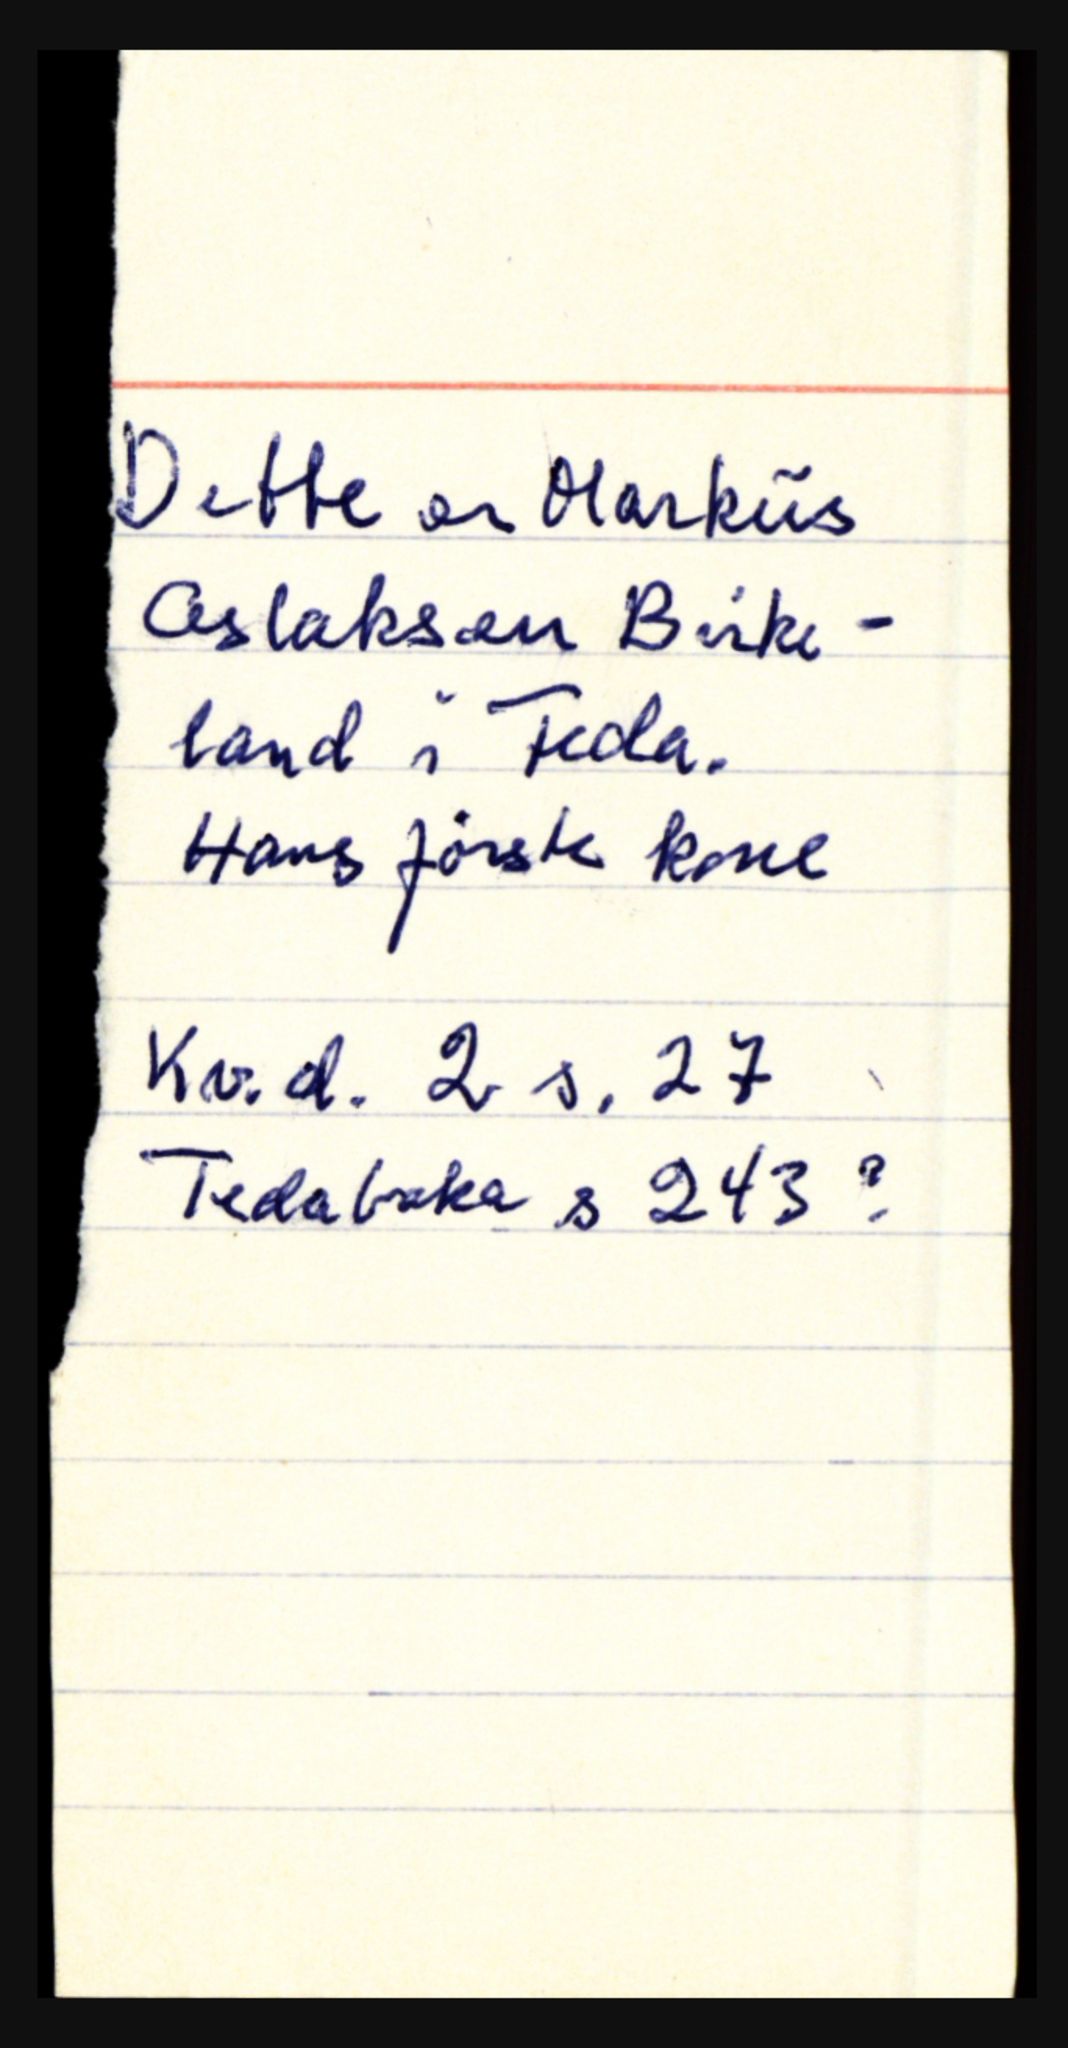 Dette er Markus
Aslaksen Birke-
land i Feda.
Hans første kone
Kv.d. 2 s. 27
Fedaboka s 243?